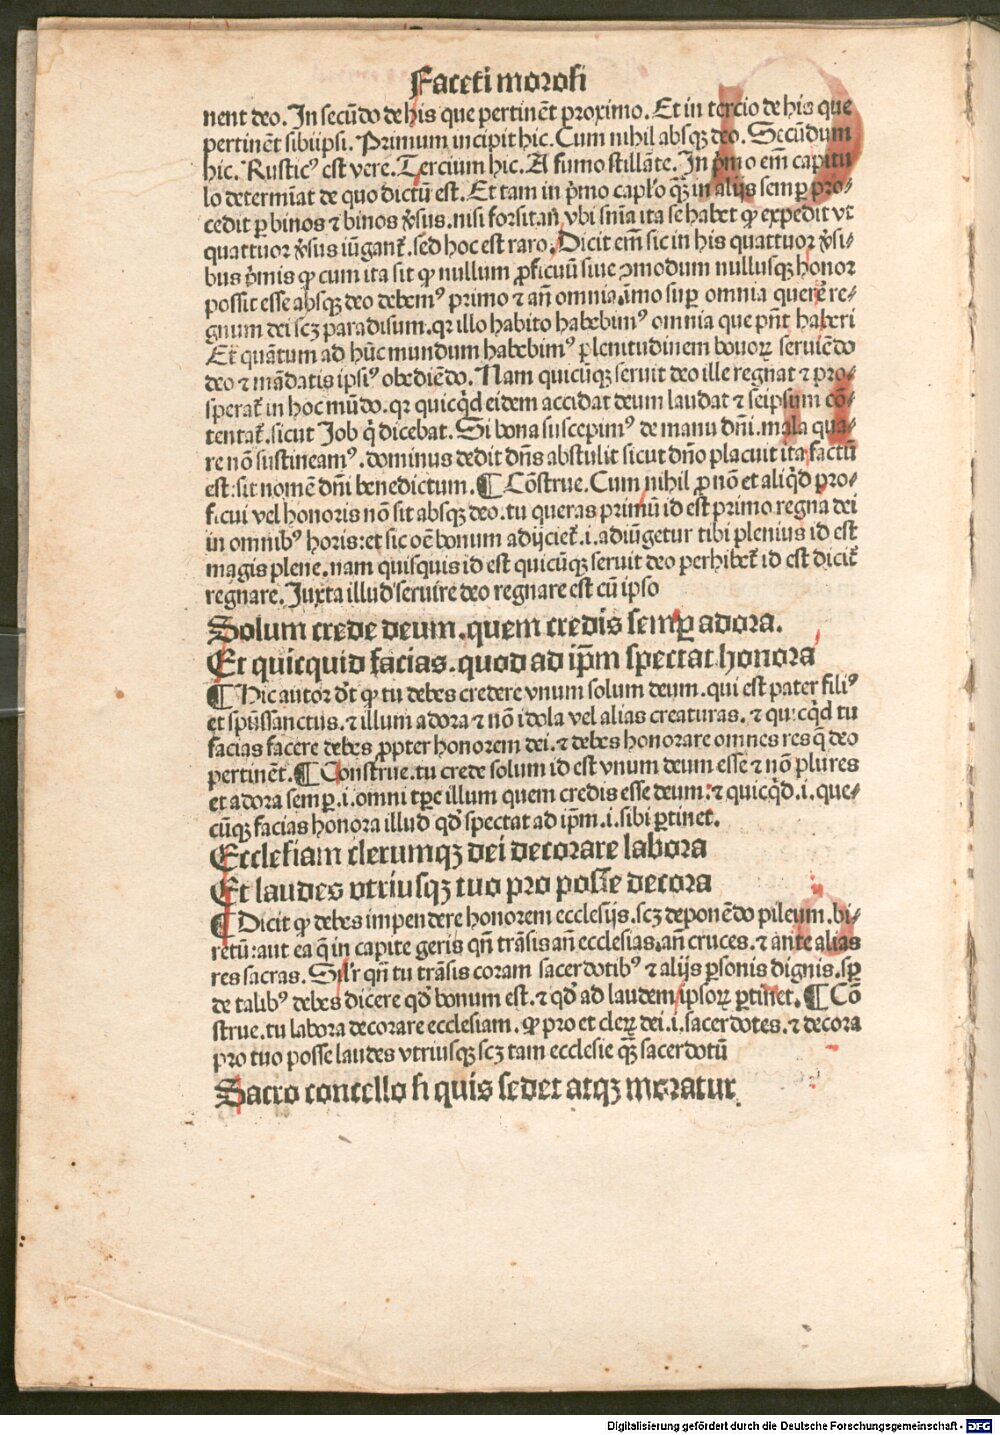 Faceti morosi
nent deo. In secūdo de his que pertinēt proximo. Et in tercio de his que
pertinēt sibiipsi. Primum incipit hic. Cum nihil absqꝫ deo. Secūdum
hic. Rusticꝰ est vere. Tercium hic. A fumo stillāte. In p̄mo em̄ capitu
lo determīat de quo dictū est. Et tam in p̄mo caplo qꝫ in alijs semꝑ pro⸗
cedit ꝑ binos ⁊ binos v̄sus. nisi forsitan̄ vbi sn̄ia ita se habet ꝙ expedit vt
quattuor v̄sus iūganꝉ. sed hoc est raro. Dicit em̄ sic in his quattuor v̄si⸗
bus p̄mis ꝙ cum ita sit ꝙ nullum ꝓficuū siue ꝯmodum nullusqꝫ honor
possit esse absqꝫ deo debemꝰ primo ⁊ an̄ omnia. īmo suꝑ omnia querere re⸗
gnum dei scꝫ paradisum. qꝛ illo habito habebimꝰ omnia que pn̄t haberi
Et quātum ad hūc mundum habebimꝰ plenitudinem bonoꝝ seruiēdo
deo ⁊ mādatis ipsiꝰ obediēdo. Nam quicūqꝫ seruit deo ille regnat ⁊ pro⸗
speratꝉ in hoc mūdo. qꝛ quicqͥd eidem accidat deum laudat ⁊ seipsum cō⸗
tentatꝉ. sicut Job qͥ dicebat. Si bona suscepimꝰ de manu dn̄i. mala qua⸗
re nō sustineamꝰ. dominus dedit dn̄s abstulit sicut dn̄o placuit ita factū
est: sit nomē dn̄i benedictum. ¶ Cōstrue. Cum nihil ꝓ nō et aliqͥd pro⸗
ficui vel honoris nō sit absqꝫ deo. tu queras primū id est primo regna dei
in omnibꝰ horis: et sic oē bonum adijcietꝉ .i. adiūgetur tibi plenius id est
magis plene. nam quisquis id est quicūqꝫ seruit deo perhibetꝉ id est dicitꝉ
regnare. Juxta illud seruire deo regnare est cū ipso
Solum crede deum. quem credis semꝑ adora.
Et quicquid facias. quod ad ip̄m spectat honora
¶ Hic autor dꝉt ꝙ tu debes credere vnum solum deum. qui est pater filiꝰ
et spūssanctus. ⁊ illum adora ⁊ nō idola vel alias creaturas. ⁊ quicqͥd tu
facias facere debes ꝓpter honorem dei. ⁊ debes honorare omnes res q̄ deo
pertinēt. ¶ Construe. tu crede solum id est vnum deum esse ⁊ nō plures
et adora semꝑ .i. omni tꝑe illum quem credis esse deum: ⁊ quicqͥd .i. que⸗
cūqꝫ facias honora illud qd̄ spectat ad ip̄m .i. sibi ꝑtinet.
Ecclesiam clerumqꝫ dei decorare labora
Et laudes vtriusqꝫ tuo pro posse decora
¶ Dicit ꝙ debes impendere honorem ecclesijs. scꝫ deponēdo pileum. bi⸗
retū: aut ea q̄ in capite geris qn̄ trāsis an̄ ecclesias. an̄ cruces. ⁊ ante alias
res sacras. Silr qn̄ tu trāsis coram sacerdotibꝰ ⁊ alijs ꝑsonis dignis. sꝑ
de talibꝰ debes dicere qd̄ bonum est. ⁊ qd̄ ad laudem ipsoꝝ ꝑtinet. ¶ Cō
strue. tu labora decorare ecclesiam. ꝙ pro et cleꝝ dei .i. sacerdotes. ⁊ decora
pro tuo posse laudes vtriusqꝫ scꝫ tam ecclesie qꝫ sacerdotū
Sacro concello si quis sedet atqꝫ moratur.
Digitalisierung gefördert durch die Deutsche Forschungsgemeinschaft - DFG